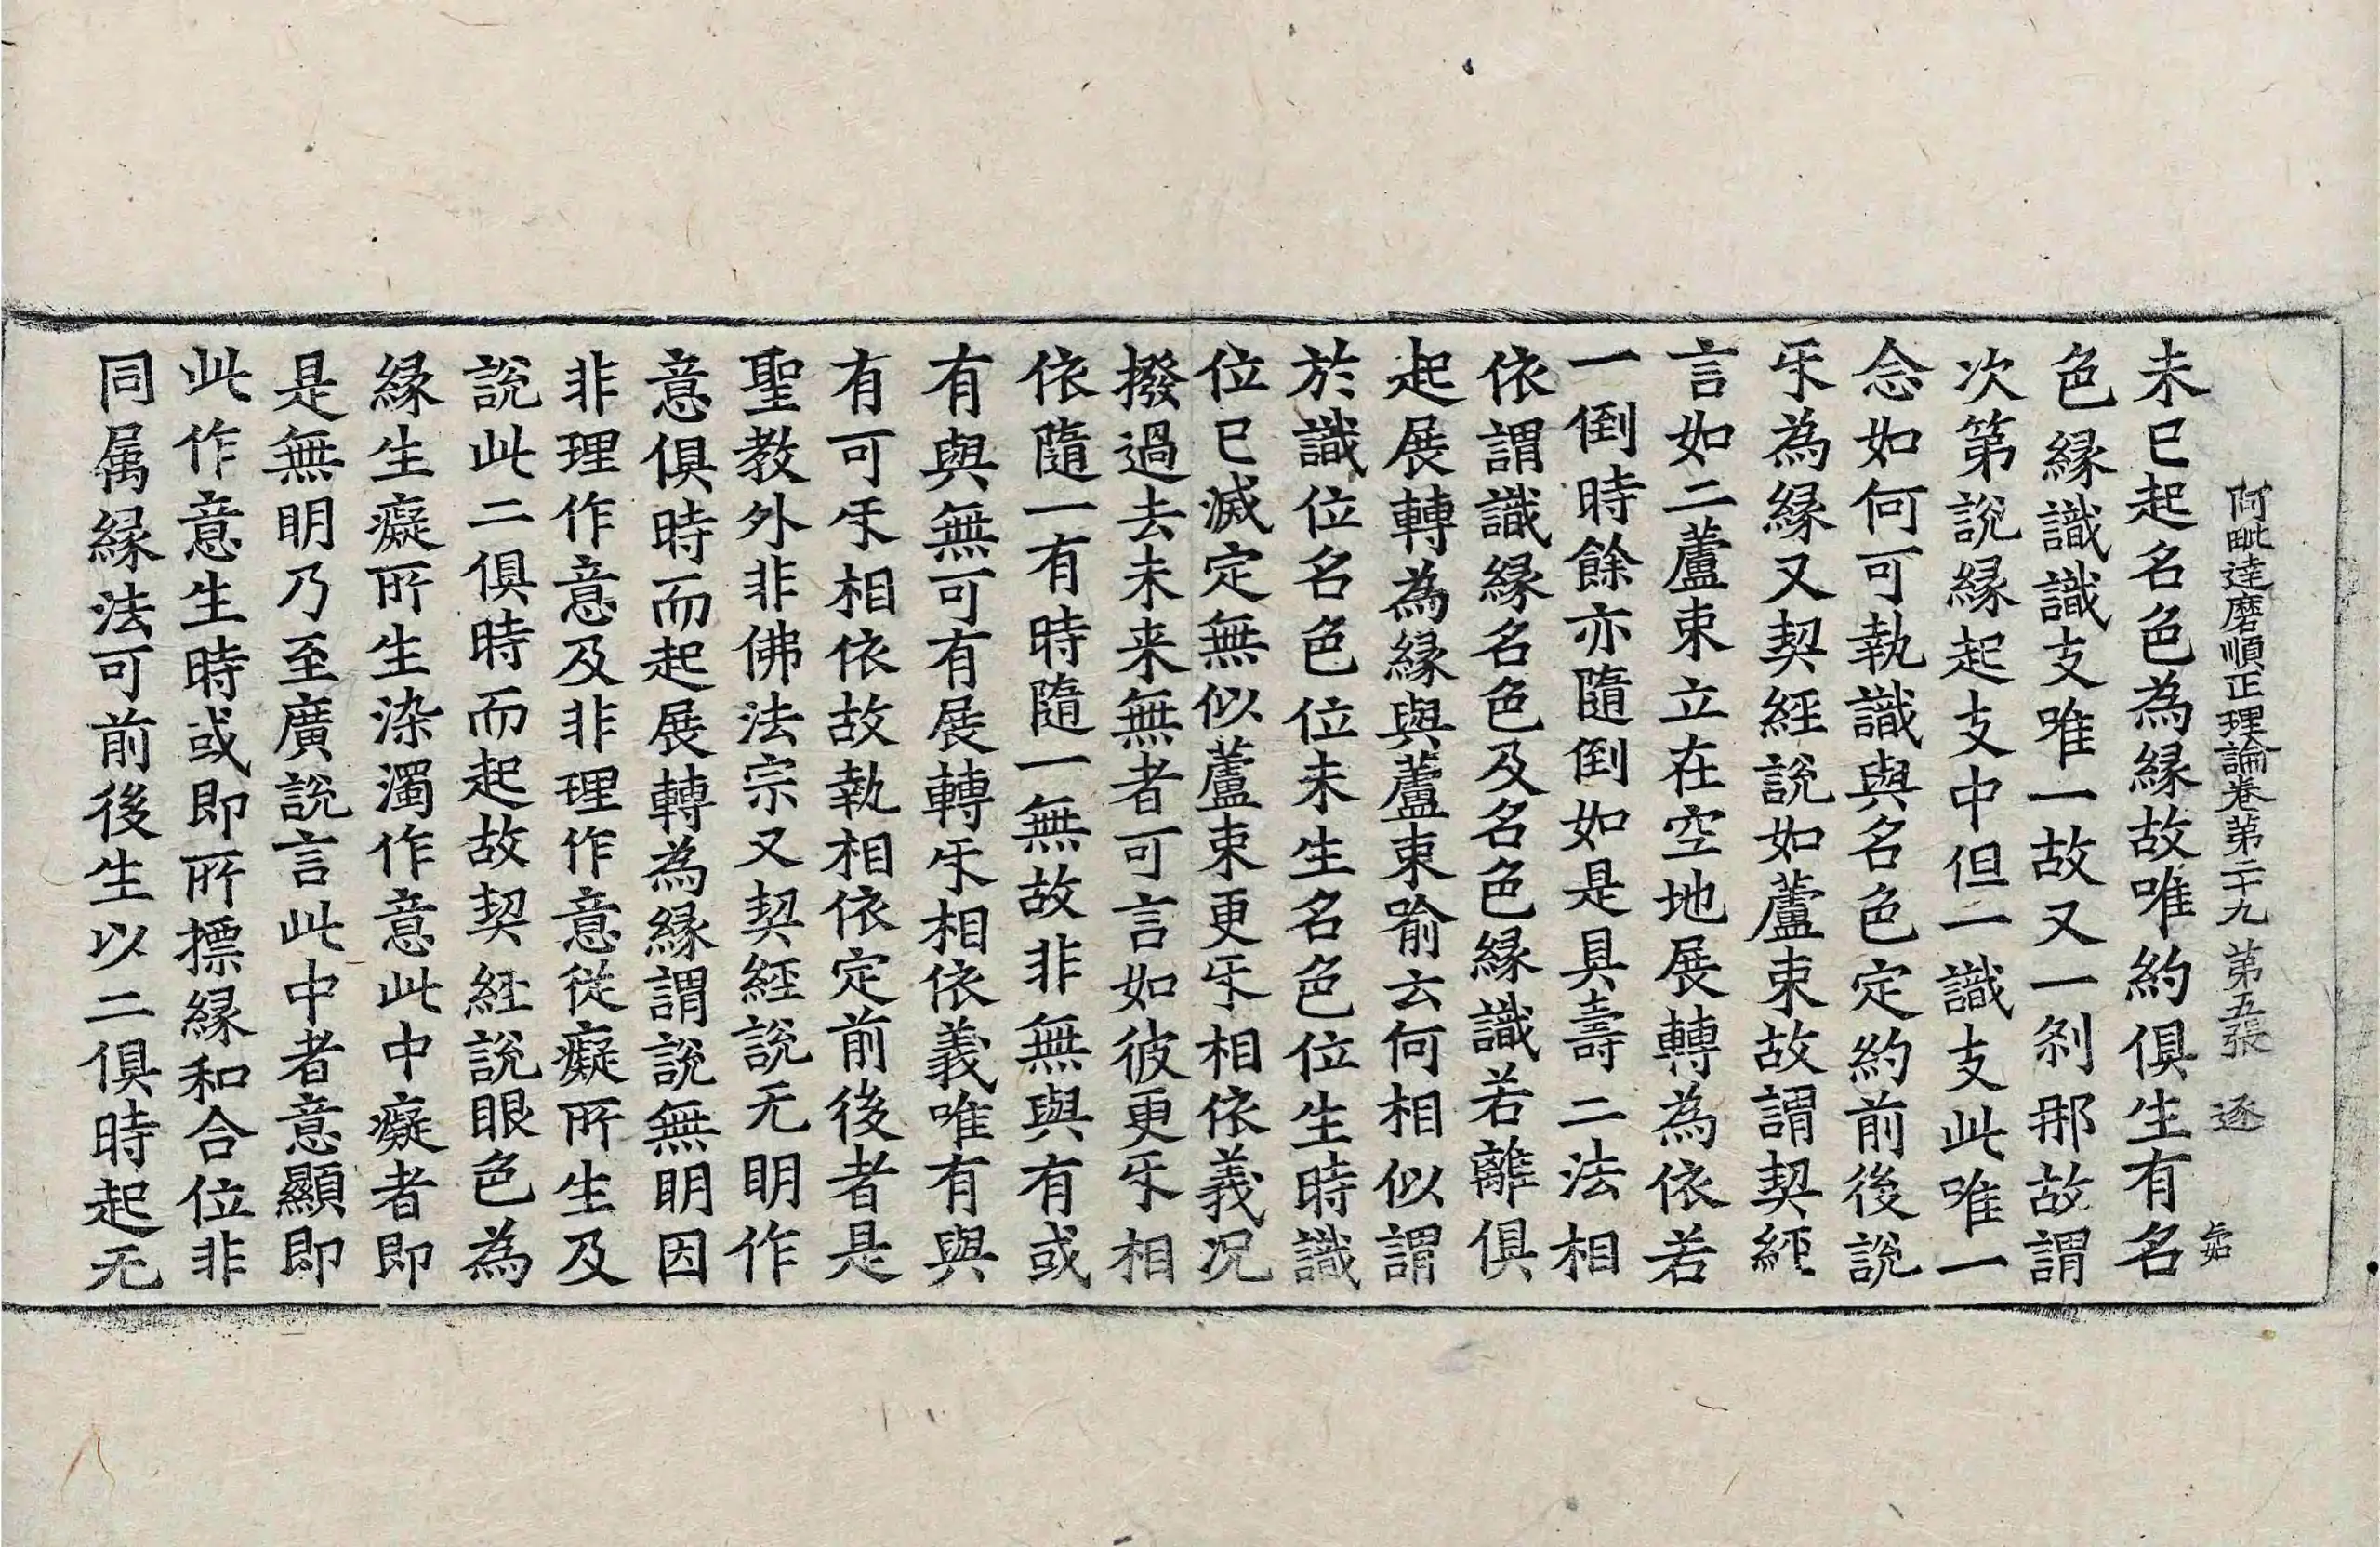 阿毗達磨順正理論卷第二十九 第五張 逐
未已起名色為緣故唯約俱生有名
色緣識識支唯一故又一剎那故謂
次第說緣起支中但一識支此唯一
念如何可執識與名色定約前後說
㸦為緣又契經說如蘆束故謂契經
言如二蘆束立在空地展轉為依若
一倒時餘亦隨倒如是具壽二法相
依謂識緣名色及名色緣識若離俱
起展轉為緣與蘆束喻云何相似謂
於識位名色位未生名色位生時識
位已滅定無似蘆束更㸦相依義况
撥過去未来無者可言如彼更㸦相
依隨一有時隨一無故非無與有或
有與無可有展轉㸦相依義唯有與
有可㸦相依故執相依定前後者是
聖教外非佛法宗又契經說无明作
意俱時而起展轉為緣謂說無明因
非理作意及非理作意從癡所生及
說此二俱時而起故契經說眼色為
緣生癡所生染濁作意此中癡者即
是無明乃至廣說言此中者意顯即
此作意生時或即所摽緣和合位非
同属緣法可前後生以二俱時起无